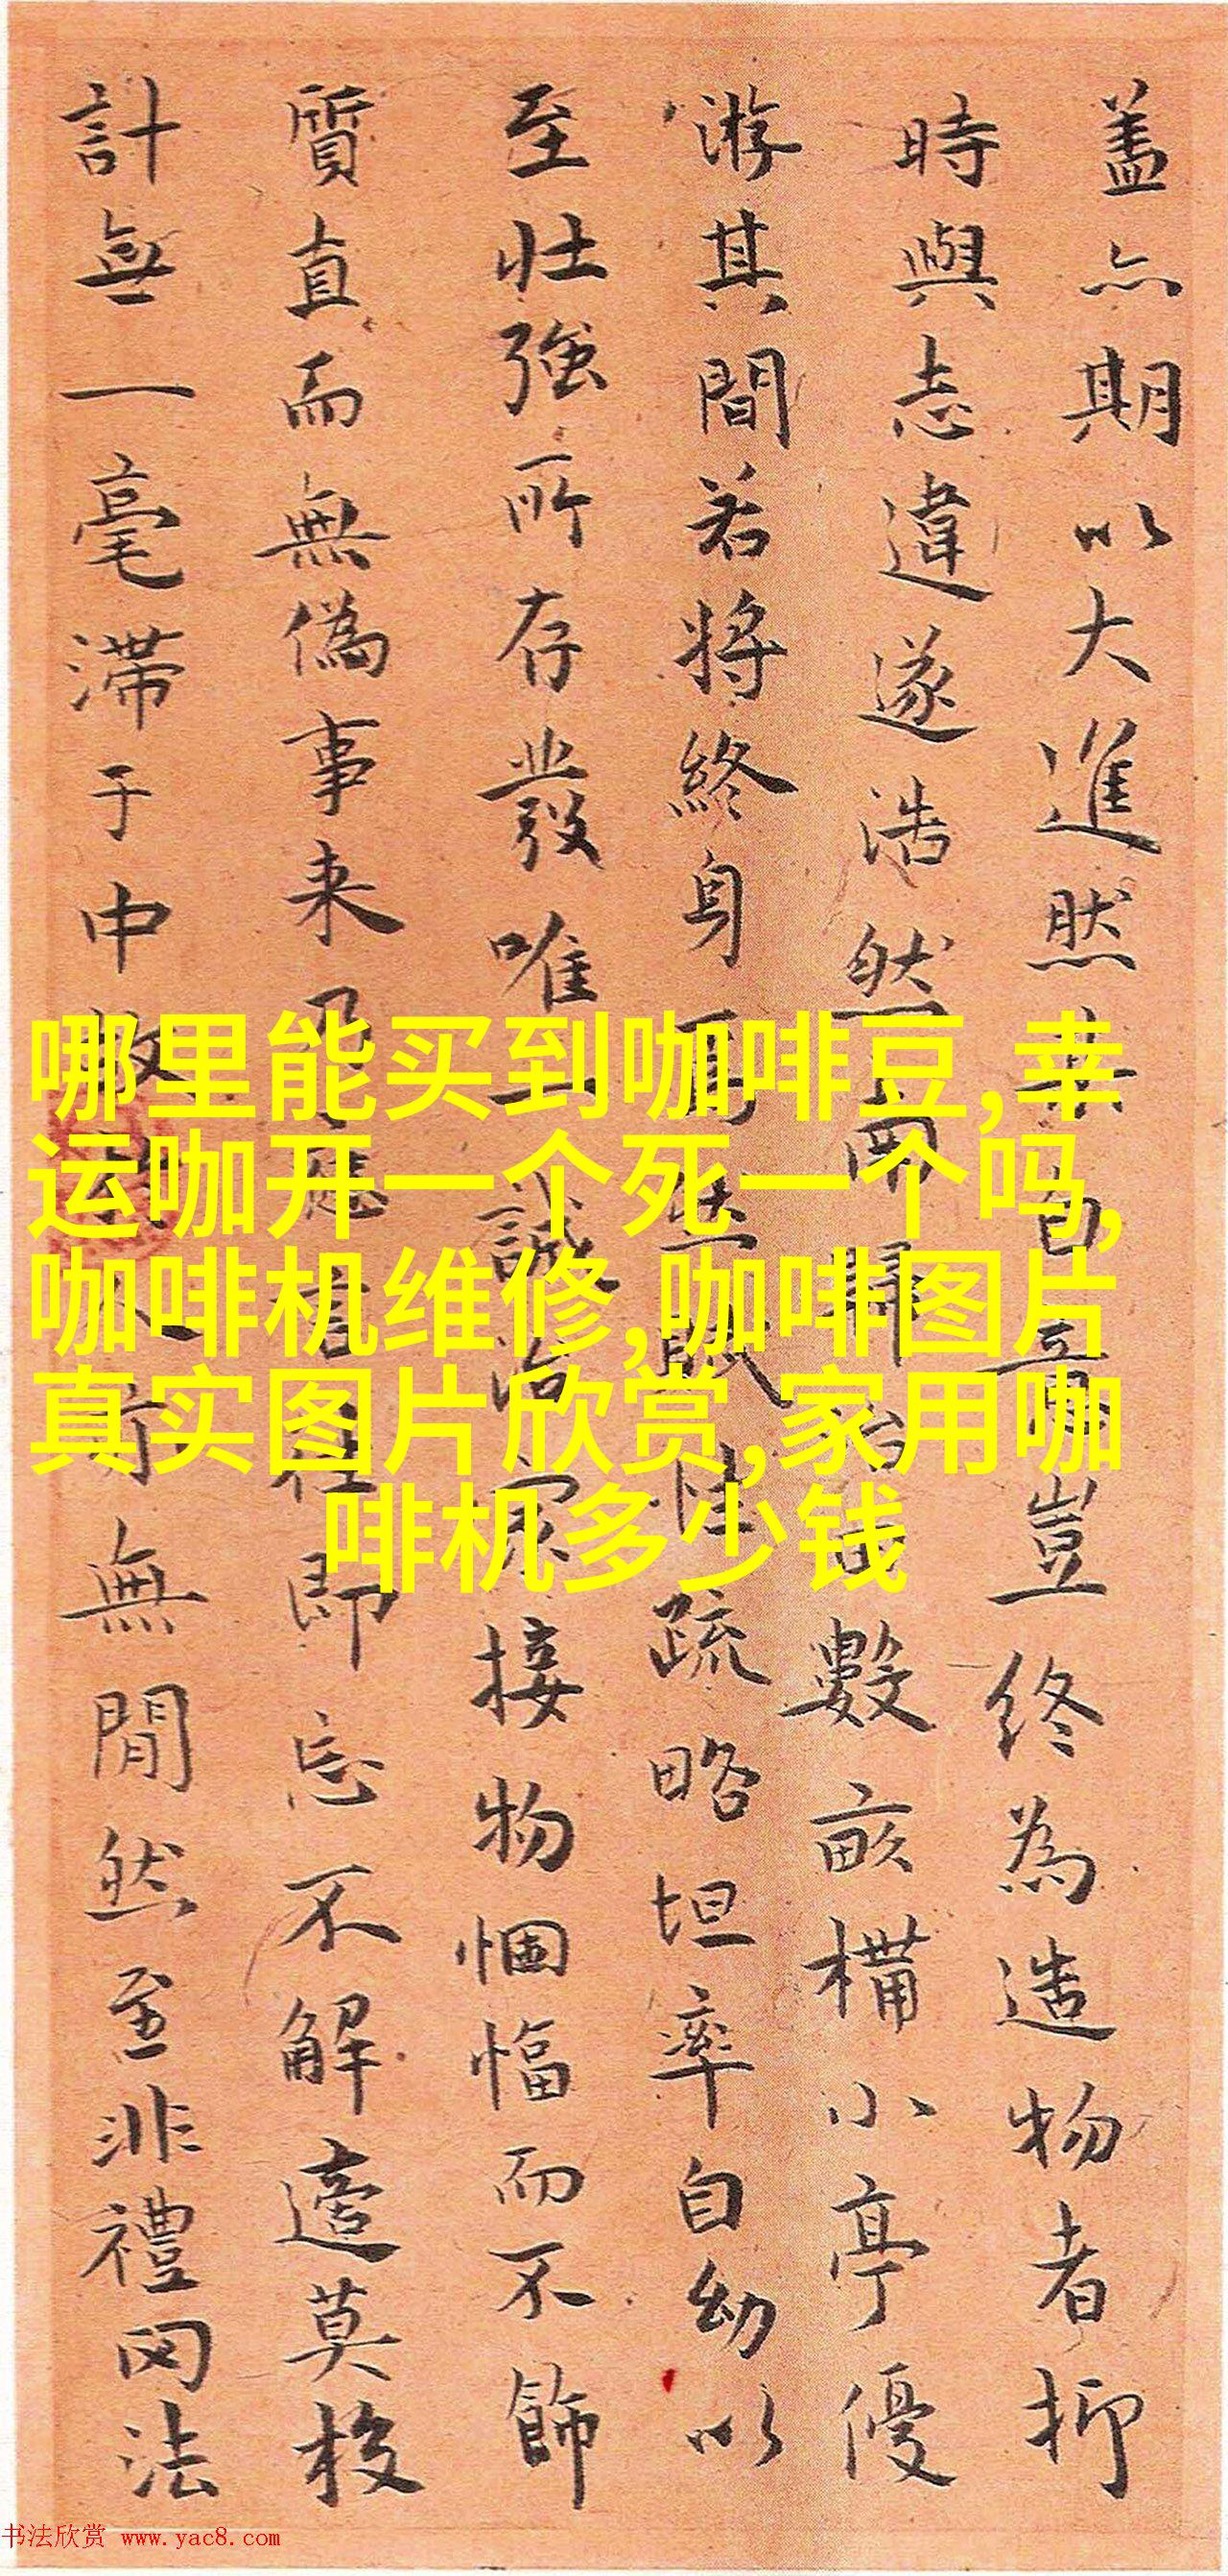 盖亦期以大進然其自豈終為造物者抑
時與志違遂浩然而歸數畝構小亭優
游其間若将終身焉性疏略坦率自幼以
至壯強所存發唯一誠治家接物悃愊而不飾
質直而無僞事来即忘不解邉莫校
計無一毫滞于中故無閒然至非禮罔法
哪里能买到咖啡豆,幸
运咖开一个死一个吗,
咖啡机维修,咖啡图片
真实图片欣赏,家用咖
啡机多少钱
书法欣赏 www.yac8.com